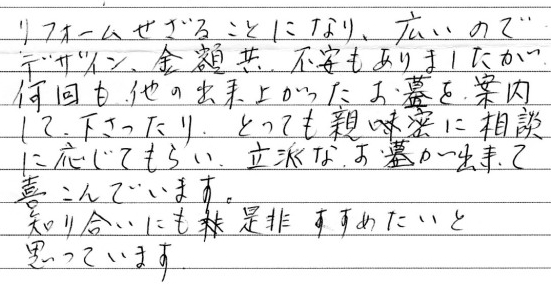 リフォームせざることになり、広いので
デザイン、金額共、不安もありましたが
何回も他の出来上がったお墓を案内
して下さったり、とっても親味密に相談
に応じてもらい、立派なお墓が出来て
喜こんでいます。
知り合いにも是非すすめたいと
思っています。